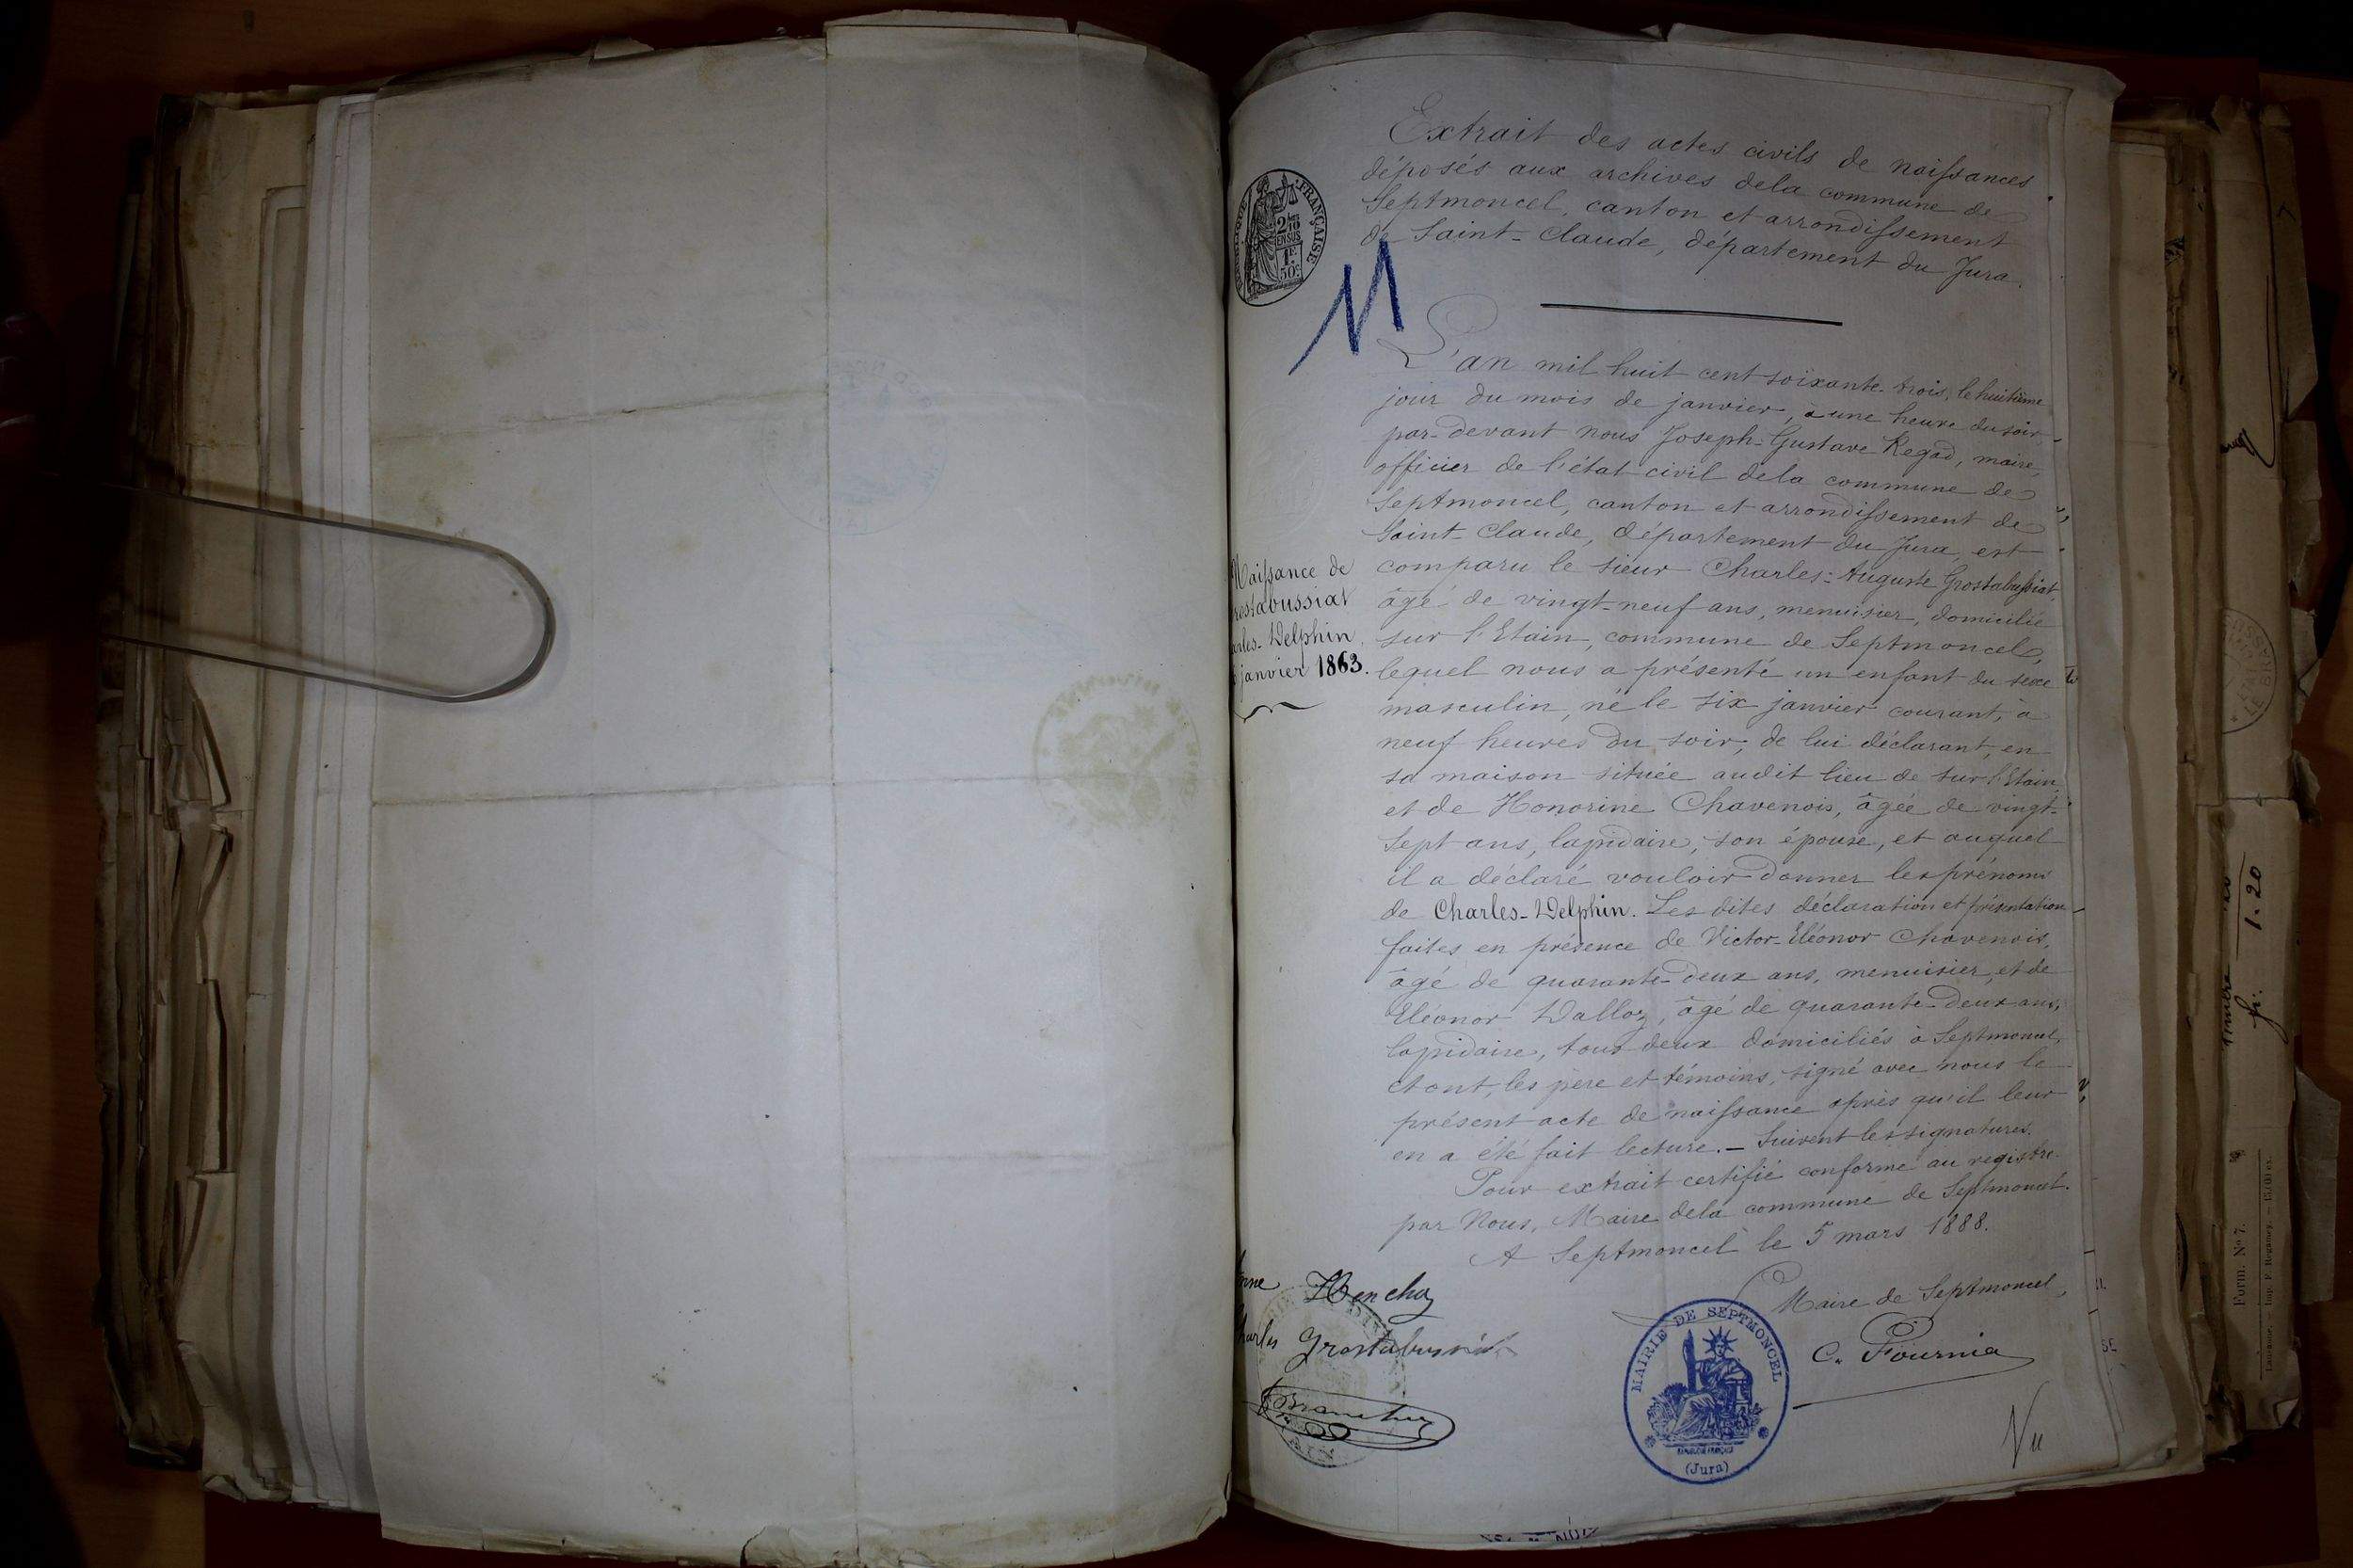 Extrait des actes civils de naissances
déposés aux archives dela commune de
Septmoncel, canton et arrondissement
de Saint-Claude, département du Jura.
FRANÇAISE
2/10
EN SUS
1F
50c
11
L'an mil huit cent soixante-trois, le huitième
jour du mois de janvier, à une heure du soir
par-devant nous Joseph-Gustave Regad, maire,
officier de l'état civil dela commune de
Septmoncel, canton et arrondissement de
Saint-Claude, département du Jura, est
comparu le sieur Charles-Auguste Grostabussiat,
âgé de vingt-neuf ans, menuisier, domicilié
sur l'Etain, commune de Septmoncel,
lequel nous a présenté un enfant du sexe
masculin, né le six janvier courant, à
neuf heures du soir, de lui déclarant, en
sa maison située audit lieu de sur l'Etain,
et de Honorine Chavenois, âgée de vingt-
sept ans, lapidaire, son épouse, et auquel
il a déclaré vouloir donner les prénoms
de Charles-Delphin. Les dites déclaration et présentation
faites en présence de Victor-Eléonor Chavenois,
âgé de quarante-deux ans, menuisier, et de
Eléonor Dalloz, âgé de quarante-deux ans,
lapidaire, tous deux domiciliés à Septmoncel,
et ont, les père et témoins, signé avec nous le
présent acte de naissance après qu'il leur
en a été fait lecture. - Suivent les signatures.
Pour extrait certifié conforme au registre
par Nous, Maire dela commune de Septmoncel.
A Septmoncel le 5 mars 1888.
Maire de Septmoncel,
C. Fournia
Vu
Naissance de
rostabussiat
arles-Delphin
janvier 1863.
Henchoz
harles Grostabussiat
MAIRIE DE SEPTMONCEL
RÉPUBLIQUE FRANÇAISE
(Jura)
fr. 1.20
Form. No 7.